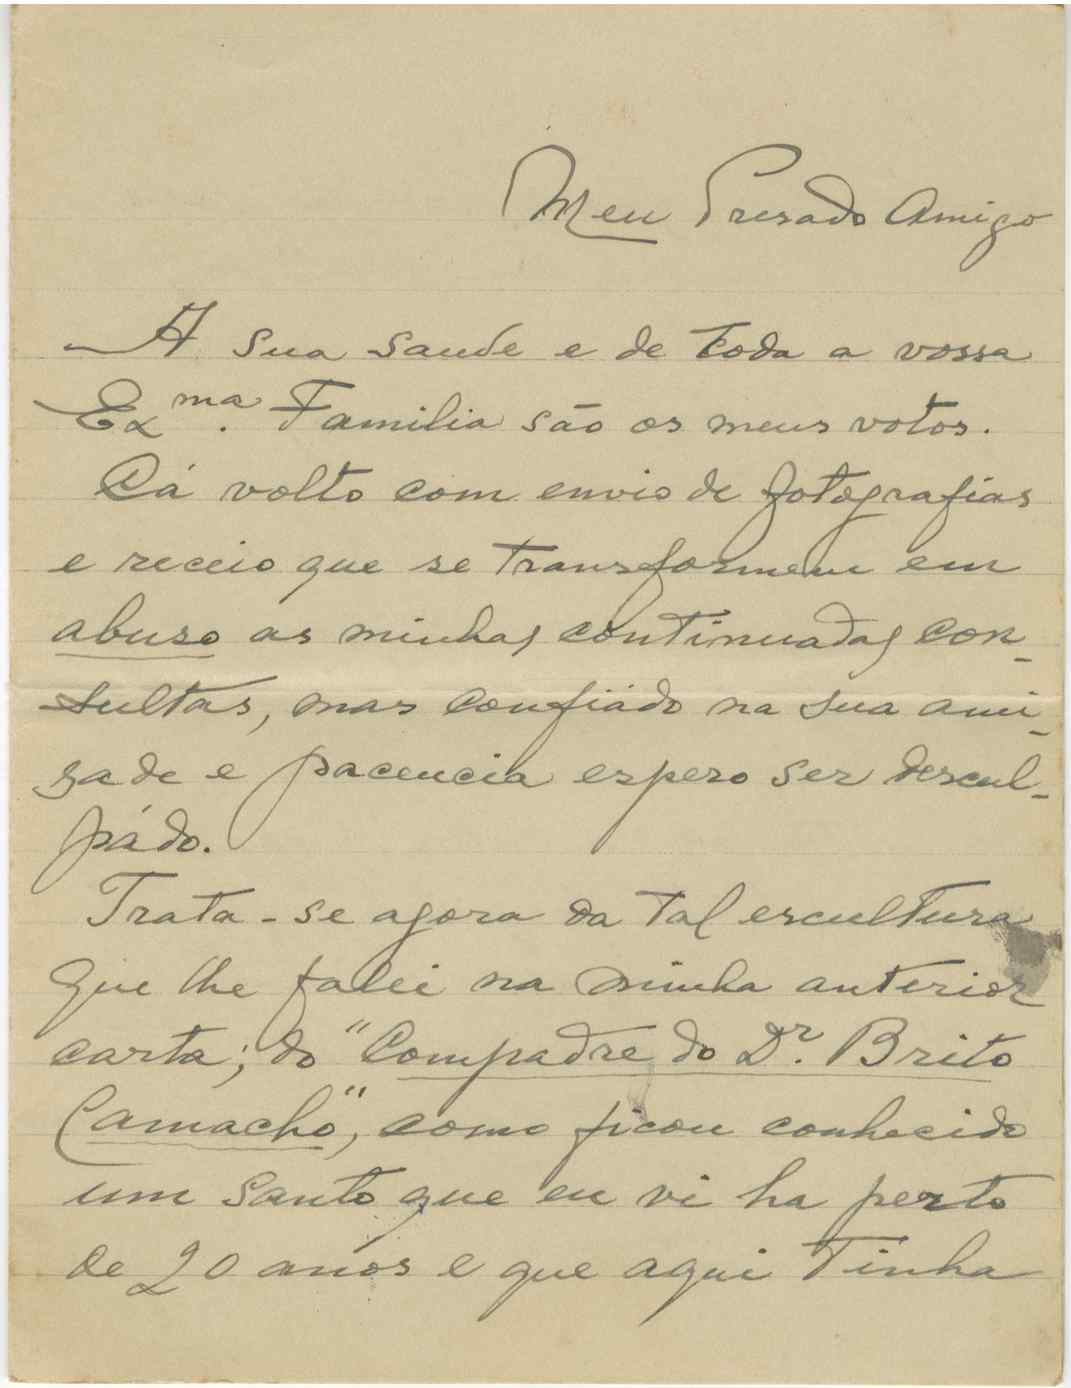 Meu Presado Amigo
A sua saude e de toda a vossa
Ex.ma Familia são os meus votos.
Cá volto com envio de fotografias
e receio que se transformem em
abuso as minhas continuadas con-
sultas, mas confiádo na sua ami-
zade e pacencia espero ser descul-
pádo.
Trata-se agora da tal escultura
que lhe falei na minha anterior
carta; do "Compadre do Dr. Brito
Camacho", como ficou conhecido
um santo que eu vi ha perto
de 20 anos e que aqui tinha